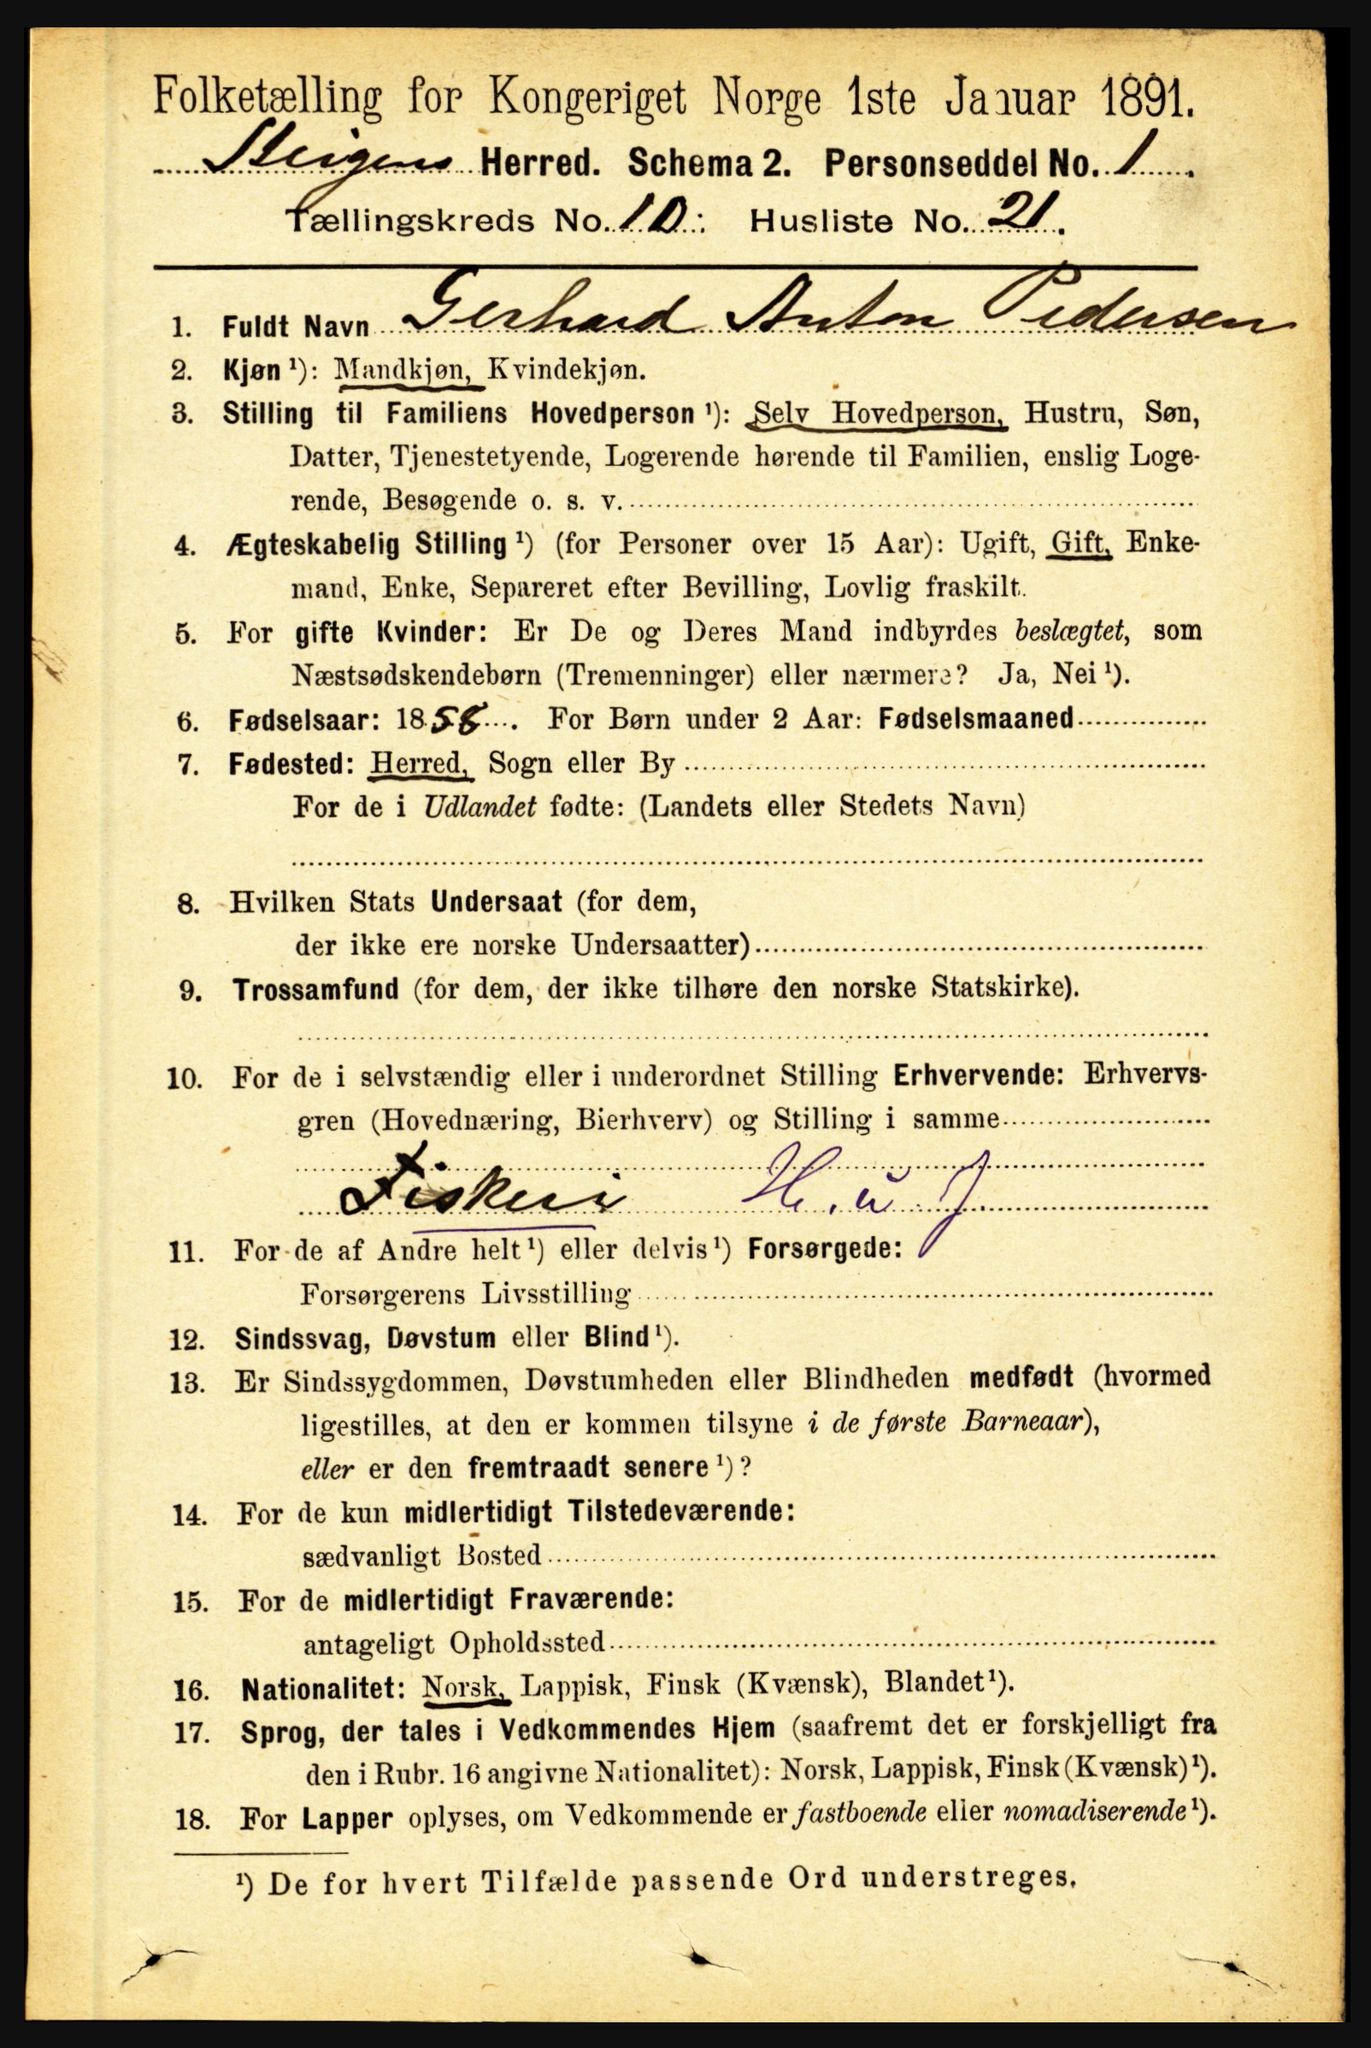 Folketælling for Kongeriget Norge 1ste Januar 1891.
Steigens Herred. Schema 2. Personseddel No. 1.
Tællingskreds No. 10: Husliste No. 21.
1. Fuldt Navn Gerhard Anton Pedersen
2. Kjøn ¹): Mandkjøn, Kvindekjøn.
3. Stilling til Familiens Hovedperson ¹): Selv Hovedperson, Hustru, Søn,
Datter, Tjenestetyende, Logerende hørende til Familien, enslig Loge-
rende, Besøgende o. s. v.
4. Ægteskabelig Stilling ¹) (for Personer over 15 Aar): Ugift, Gift, Enke-
mand, Enke, Separeret efter Bevilling, Lovlig fraskilt.
5. For gifte Kvinder: Er De og Deres Mand indbyrdes beslægtet, som
Næstsødskendebørn (Tremenninger) eller nærmere? Ja, Nei ¹).
6. Fødselsaar: 1858. For Børn under 2 Aar: Fødselsmaaned
7. Fødested: Herred, Sogn eller By
For de i Udlandet fødte: (Landets eller Stedets Navn)
8. Hvilken Stats Undersaat (for dem,
der ikke ere norske Undersaatter)
9. Trossamfund (for dem, der ikke tilhøre den norske Statskirke).
10. For de i selvstændig eller i underordnet Stilling Erhvervende: Erhvervs-
gren (Hovednæring, Bierhverv) og Stilling i samme
Fiskeri H. u J.
11. For de af Andre helt ¹) eller delvis ¹) Forsørgede:
Forsørgerens Livsstilling
12. Sindssvag, Døvstum eller Blind ¹).
13. Er Sindssygdommen, Døvstumheden eller Blindheden medfødt (hvormed
ligestilles, at den er kommen tilsyne i de første Barneaar),
eller er den fremtraadt senere ¹)?
14. For de kun midlertidigt Tilstedeværende:
sædvanligt Bosted
15. For de midlertidigt Fraværende:
antageligt Opholdssted
16. Nationalitet: Norsk, Lappisk, Finsk (Kvænsk), Blandet ¹).
17. Sprog, der tales i Vedkommendes Hjem (saafremt det er forskjelligt fra
den i Rubr. 16 angivne Nationalitet): Norsk, Lappisk, Finsk (Kvænsk) ¹).
18. For Lapper oplyses, om Vedkommende er fastboende eller nomadiserende ¹).
¹) De for hvert Tilfælde passende Ord understreges.